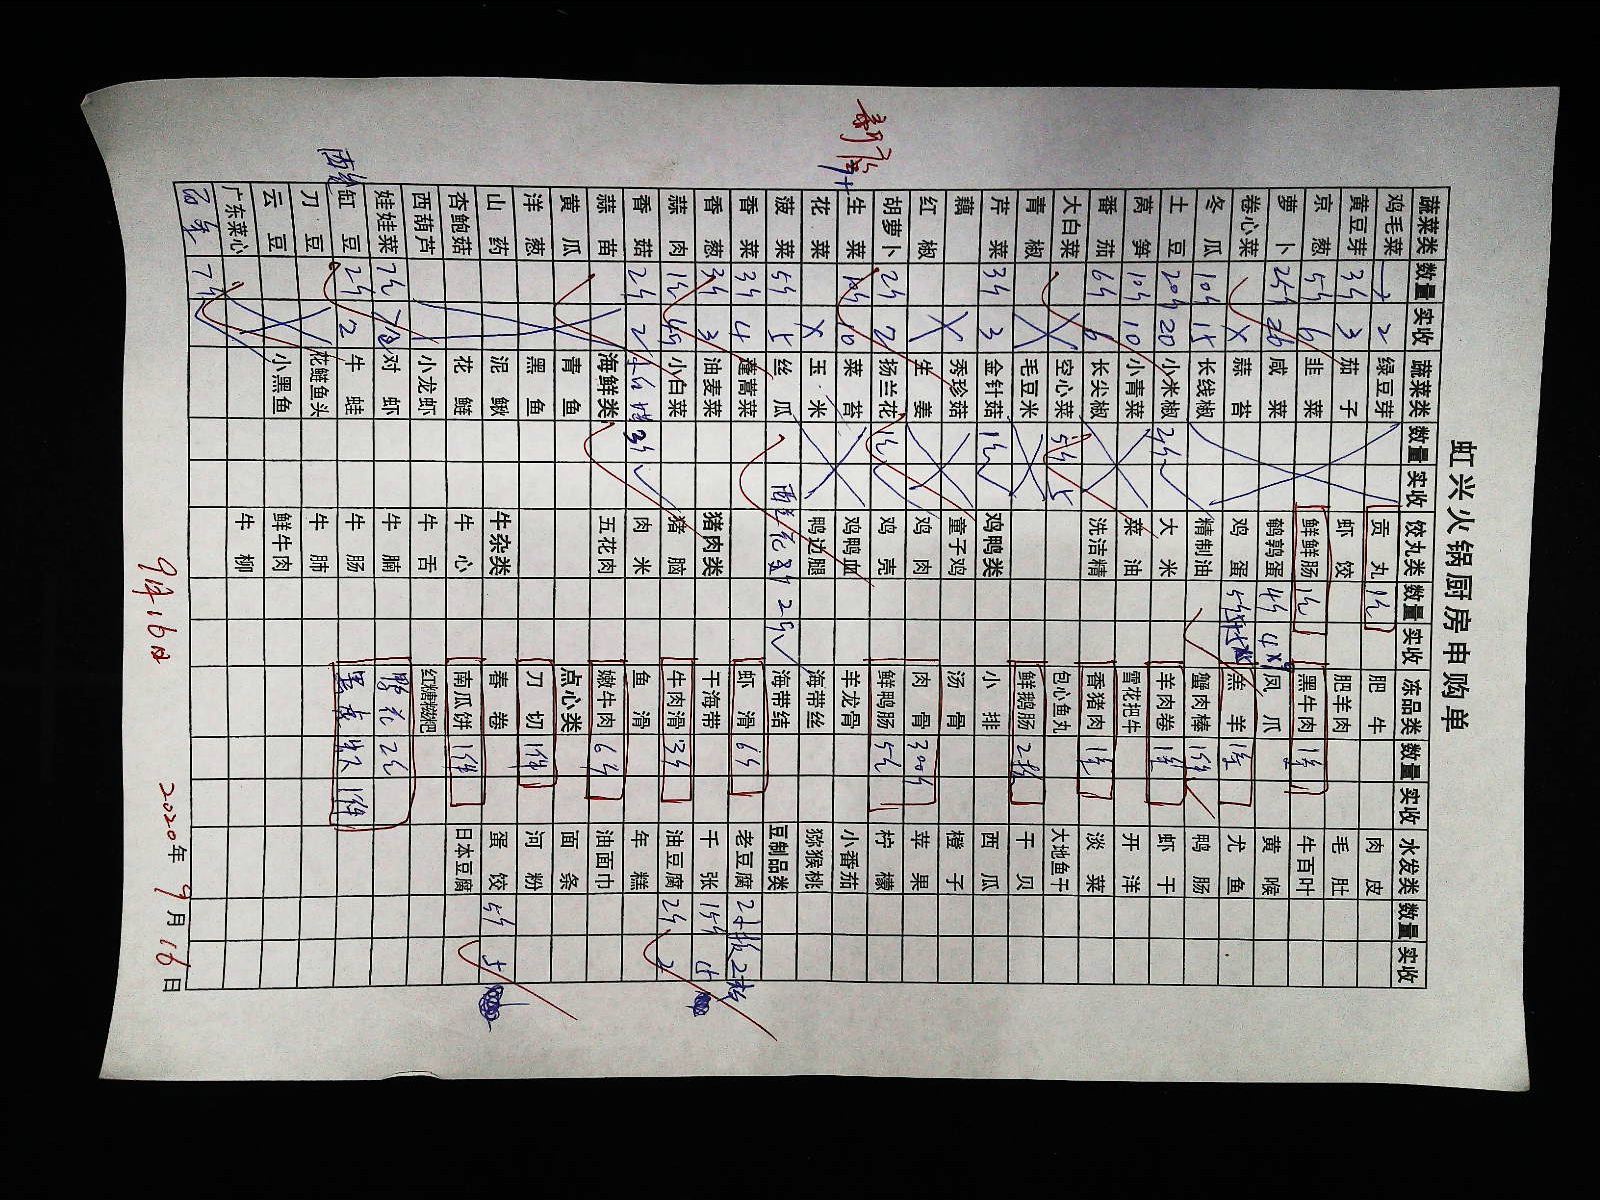 虹兴火锅厨房申购单
蔬菜类 数量 实收 蔬菜类 数量 实收 饺丸类 数量 实收 冻品类 数量 实收 水发类 数量 实收
鸡毛菜 2 2 绿豆芽 贡丸 肥牛 肉皮
黄豆芽 3斤 3 茄子 虾饺 肥羊肉 毛肚
京葱 5斤 6 韭菜 鲜鲜肠 黑牛肉 牛百叶
萝卜 25斤 26 咸菜 鹌鹑蛋 4斤 凤爪 黄喉
卷心菜 X 蒜苔 鸡蛋 羔羊 尤鱼
冬瓜 10斤 15 长线椒 精制油 蟹肉棒 鸭肠
土豆 20斤 20 小米椒 2斤 大米 羊肉卷 虾干
莴笋 10斤 10 小青菜 菜油 雪花把牛 开洋
番茄 6斤 6 长尖椒 洗洁精 香猪肉 淡菜
大白菜 空心菜 5斤 5 包心鱼丸 大地鱼干
青椒 毛豆米 鲜鹅肠 干贝
芹菜 3斤 3 金针菇 鸡鸭类 小排 西瓜
藕 秀珍菇 童子鸡 汤骨 橙子
红椒 X 生姜 鸡肉 肉骨 300斤 苹果
胡萝卜 2斤 2 扬兰花 鸡壳 鲜鸭肠 柠檬
生菜 10斤 10 菜苔 鸡鸭血 羊龙骨 小番茄
花菜 X 玉米 鸭边腿 海带丝 猕猴桃
菠菜 5斤 5 丝瓜 西兰花 2斤 海带结 豆制品类
香菜 3斤 4 蓬蒿菜 虾滑 6斤 老豆腐 2板 2板
香葱 3斤 3 油麦菜 猪肉类 干海带 千张 15斤 15
蒜肉 小白菜 猪脑 牛肉滑 3斤 油豆腐 2斤 2
香菇 2斤 2 3斤 肉米 鱼滑 年糕
蒜苗 海鲜类 五花肉 嫩牛肉 6斤 油面巾
黄瓜 青鱼 点心类 面条
洋葱 黑鱼 刀切 1件 河粉
山药 泥鳅 牛杂类 春卷 蛋饺 5斤 5
杏鲍菇 花鲢 牛心 南瓜饼 1件 日本豆腐
西葫芦 小龙虾 牛舌 红糖糍粑
娃娃菜 对虾 牛腩
缸豆 2斤 2 牛蛙 牛肠 1件
刀豆 花鲢鱼头 牛肺
云豆 小黑鱼 鲜牛肉
广东菜心 牛柳
9月16日
2020年9月16日